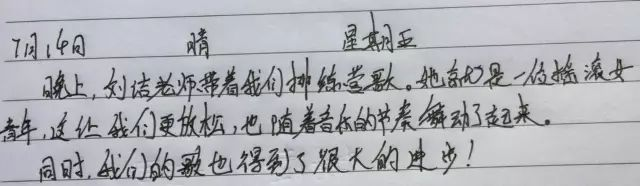 7月14日 晴 星期五
晚上,刘洁老师带着我们排练营歌。她宛如是一位摇滚女
青年,这让我们更放松,也随着音乐的节奏舞动了起来。
同时,我们的歌也得到了很大的进步!